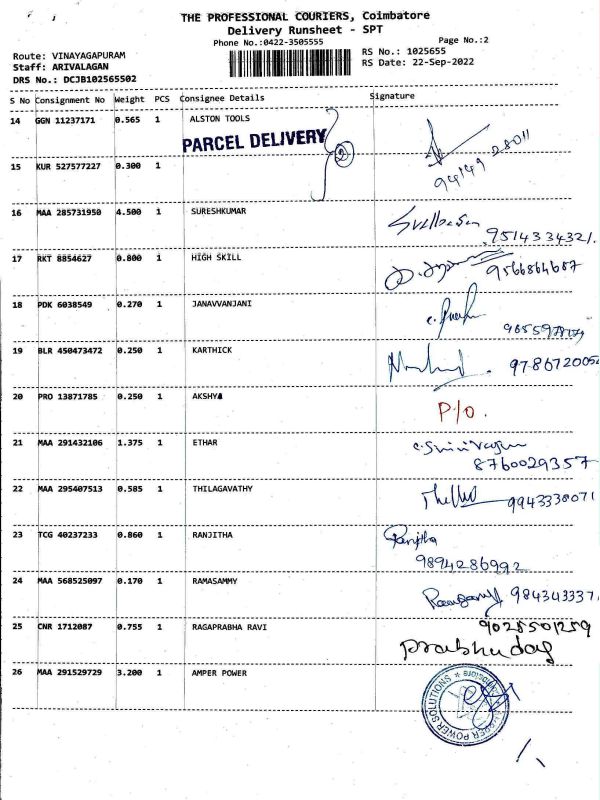 THE PROFESSIONAL COURIERS, Coimbatore
Delivery Runsheet - SPT
Phone No.:0422-3505555
Page No.:2
Route: VINAYAGAPURAM
Staff: ARIVALAGAN
DRS No.: DCJB102565502
RS No.: 1025655
RS Date: 22-Sep-2022
S No Consignment No Weight PCS Consignee Details Signature
14 GGN 11237171 0.565 1 ALSTON TOOLS
PARCEL DELIVERY
2
94149 28011
15 KUR 527577227 0.300 1
16 MAA 285731950 4.500 1 SURESHKUMAR
9514334321.
17 RKT 8854627 0.800 1 HIGH SKILL
9566864687
18 PDK 6038549 0.270 1 JANAVVANJANI
19 BLR 450473472 0.250 1 KARTHICK
978672005
20 PRO 13871785 0.250 1 AKSHYA
P/O.
21 MAA 291432106 1.375 1 ETHAR
8760029357
22 MAA 295407513 0.585 1 THILAGAVATHY
9943338071
23 TCG 40237233 0.860 1 RANJITHA
Ranjitha
9894286992
24 MAA 568525097 0.170 1 RAMASAMMY
984343337
25 CNR 1712087 0.755 1 RAGAPRABHA RAVI
9028501259
Prabhudas
26 MAA 291529729 3.200 1 AMPER POWER
POWER SOLUTIONS